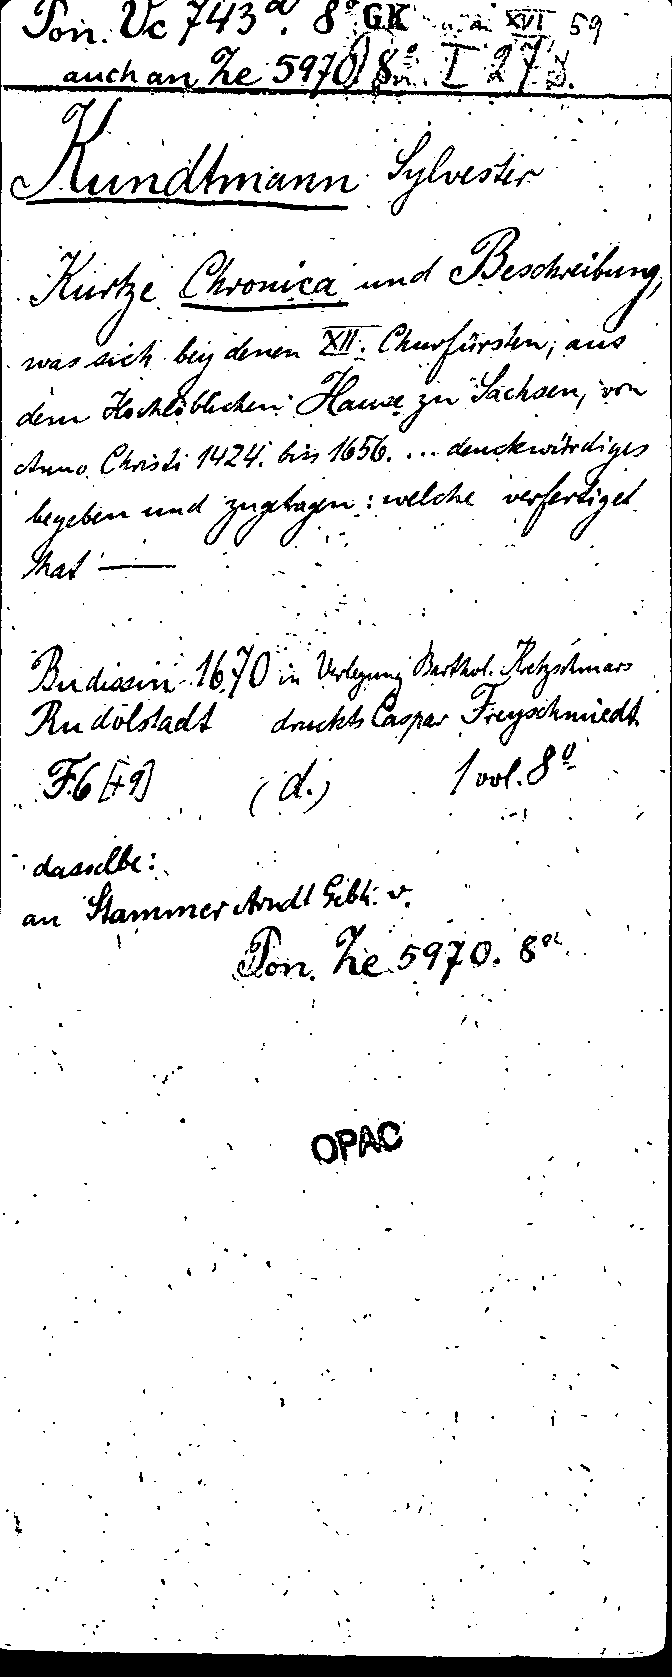 Pon. Vc 743 d. 8° GK XVI 59
auch an Ze 5970 8° I 27
Kundtmann Sylvester
Kurtze Chronica und Beschreibung,
was sich bey denen XII. Churfürsten, aus
dem Hochlöblichen Hause zu Sachsen, von
Anno Christi 1424. bis 1656. ... denckwürdiges
begeben und zugetragen: welche verfertiget
hat —
Budissin 1670 in Verlegung Barthol. Kretzschmars
Rudolstadt druckts Caspar Freyschmiedt
F.6 [+9] (d.) 1 vol. 8°
dasselbe:
an Stammer Arndt Gebh. v.
Pon. Ze 5970. 8°
OPAC